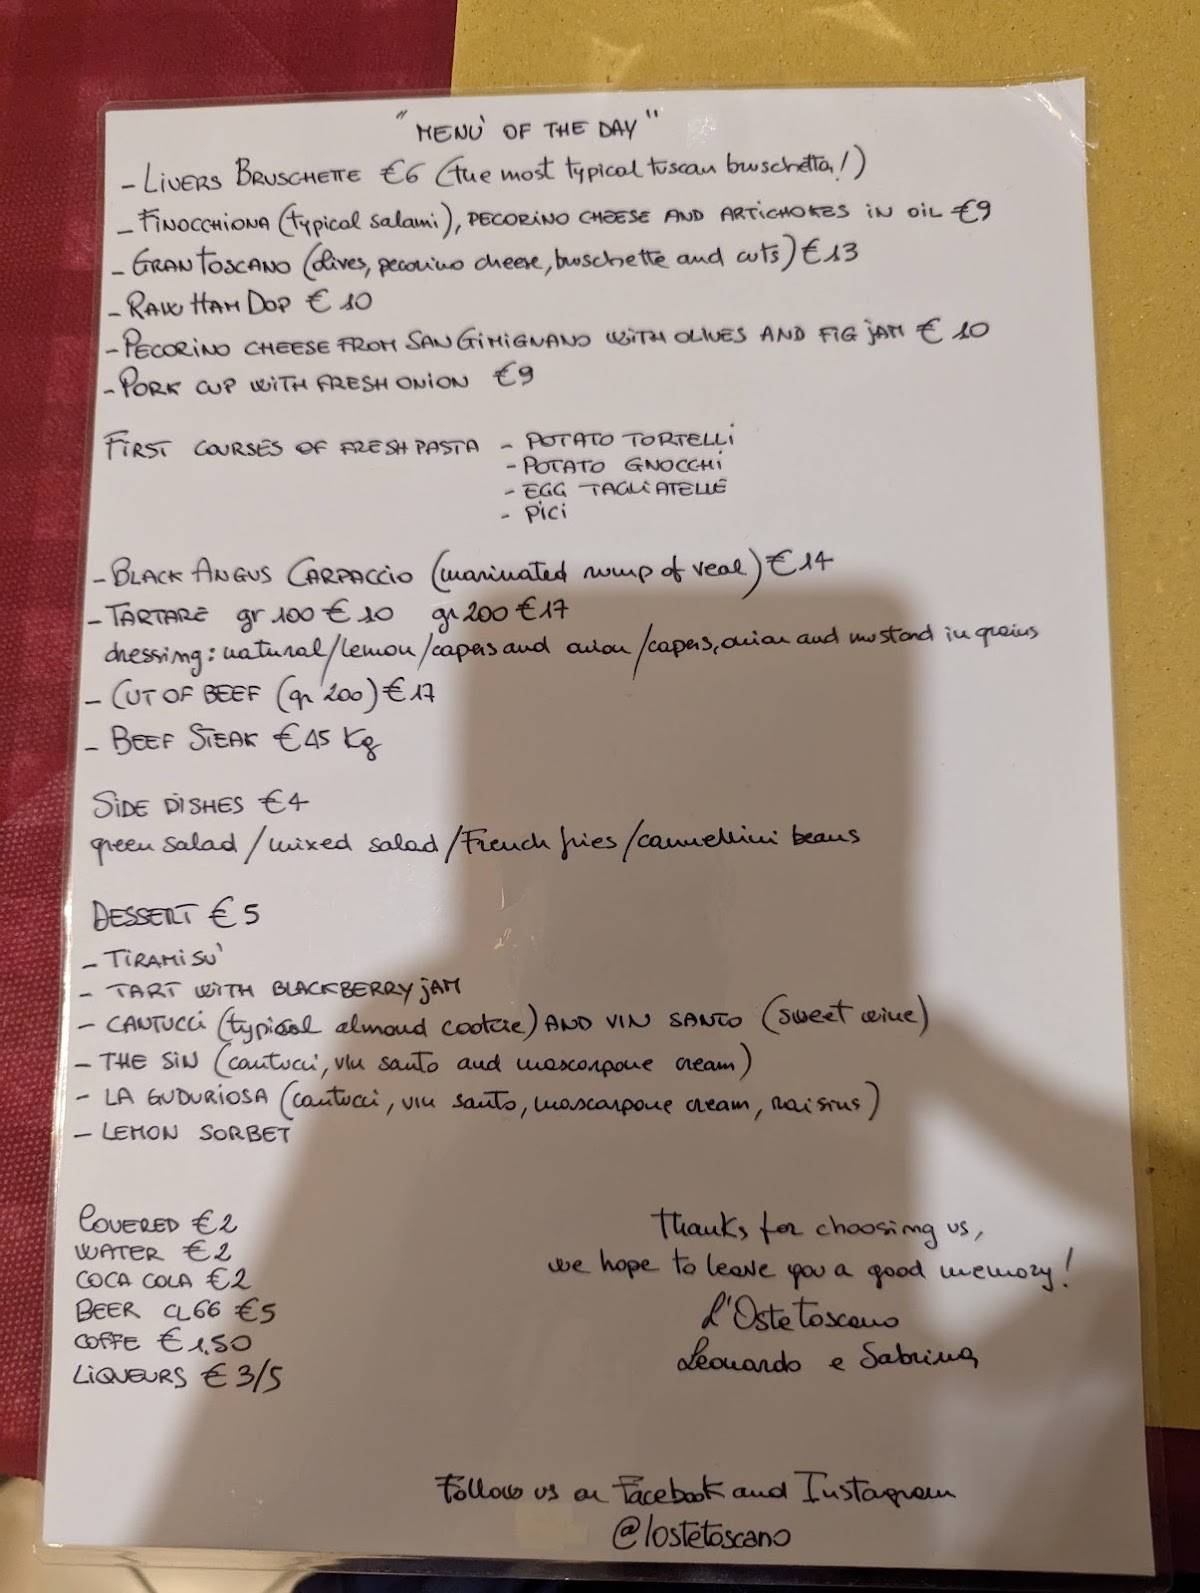 "MENU' OF THE DAY"
- LIVERS BRUSCHETTE €6 (the most typical tuscan bruschetta!)
- FINOCCHIONA (typical salami), PECORINO CHEESE AND ARTICHOKES IN OIL €9
- GRAN TOSCANO (olives, pecorino cheese, bruschette and cuts) €13
- RAW HAM DOP €10
- PECORINO CHEESE FROM SAN GIMIGNANO WITH OLIVES AND FIG JAM €10
- PORK CUP WITH FRESH ONION €9
FIRST COURSES OF FRESH PASTA - POTATO TORTELLI
- POTATO GNOCCHI
- EGG TAGLIATELLE
- PICI
- BLACK ANGUS CARPACCIO (marinated rump of veal) €14
- TARTARE gr 100 €10 gr 200 €17
dressing: natural/lemon/capers and onion/capers, onion and mustard in grains
- CUT OF BEEF (gr 200) €17
- BEEF STEAK €45 Kg
SIDE DISHES €4
green salad/mixed salad/French fries/cannellini beans
DESSERT €5
- TIRAMISU'
- TART WITH BLACKBERRY JAM
- CANTUCCI (typical almond cookie) AND VIN SANTO (sweet wine)
- THE SIN (cantucci, vin santo and mascarpone cream)
- LA GUDURIOSA (cantucci, vin santo, mascarpone cream, raisins)
- LEMON SORBET
COVERED €2
WATER €2
COCA COLA €2
BEER CL66 €5
COFFE €1,50
LIQUEURS €3/5
Thanks for choosing us,
we hope to leave you a good memory!
L'Oste Toscano
Leonardo e Sabrina
Follow us on Facebook and Instagram
@lostetoscano